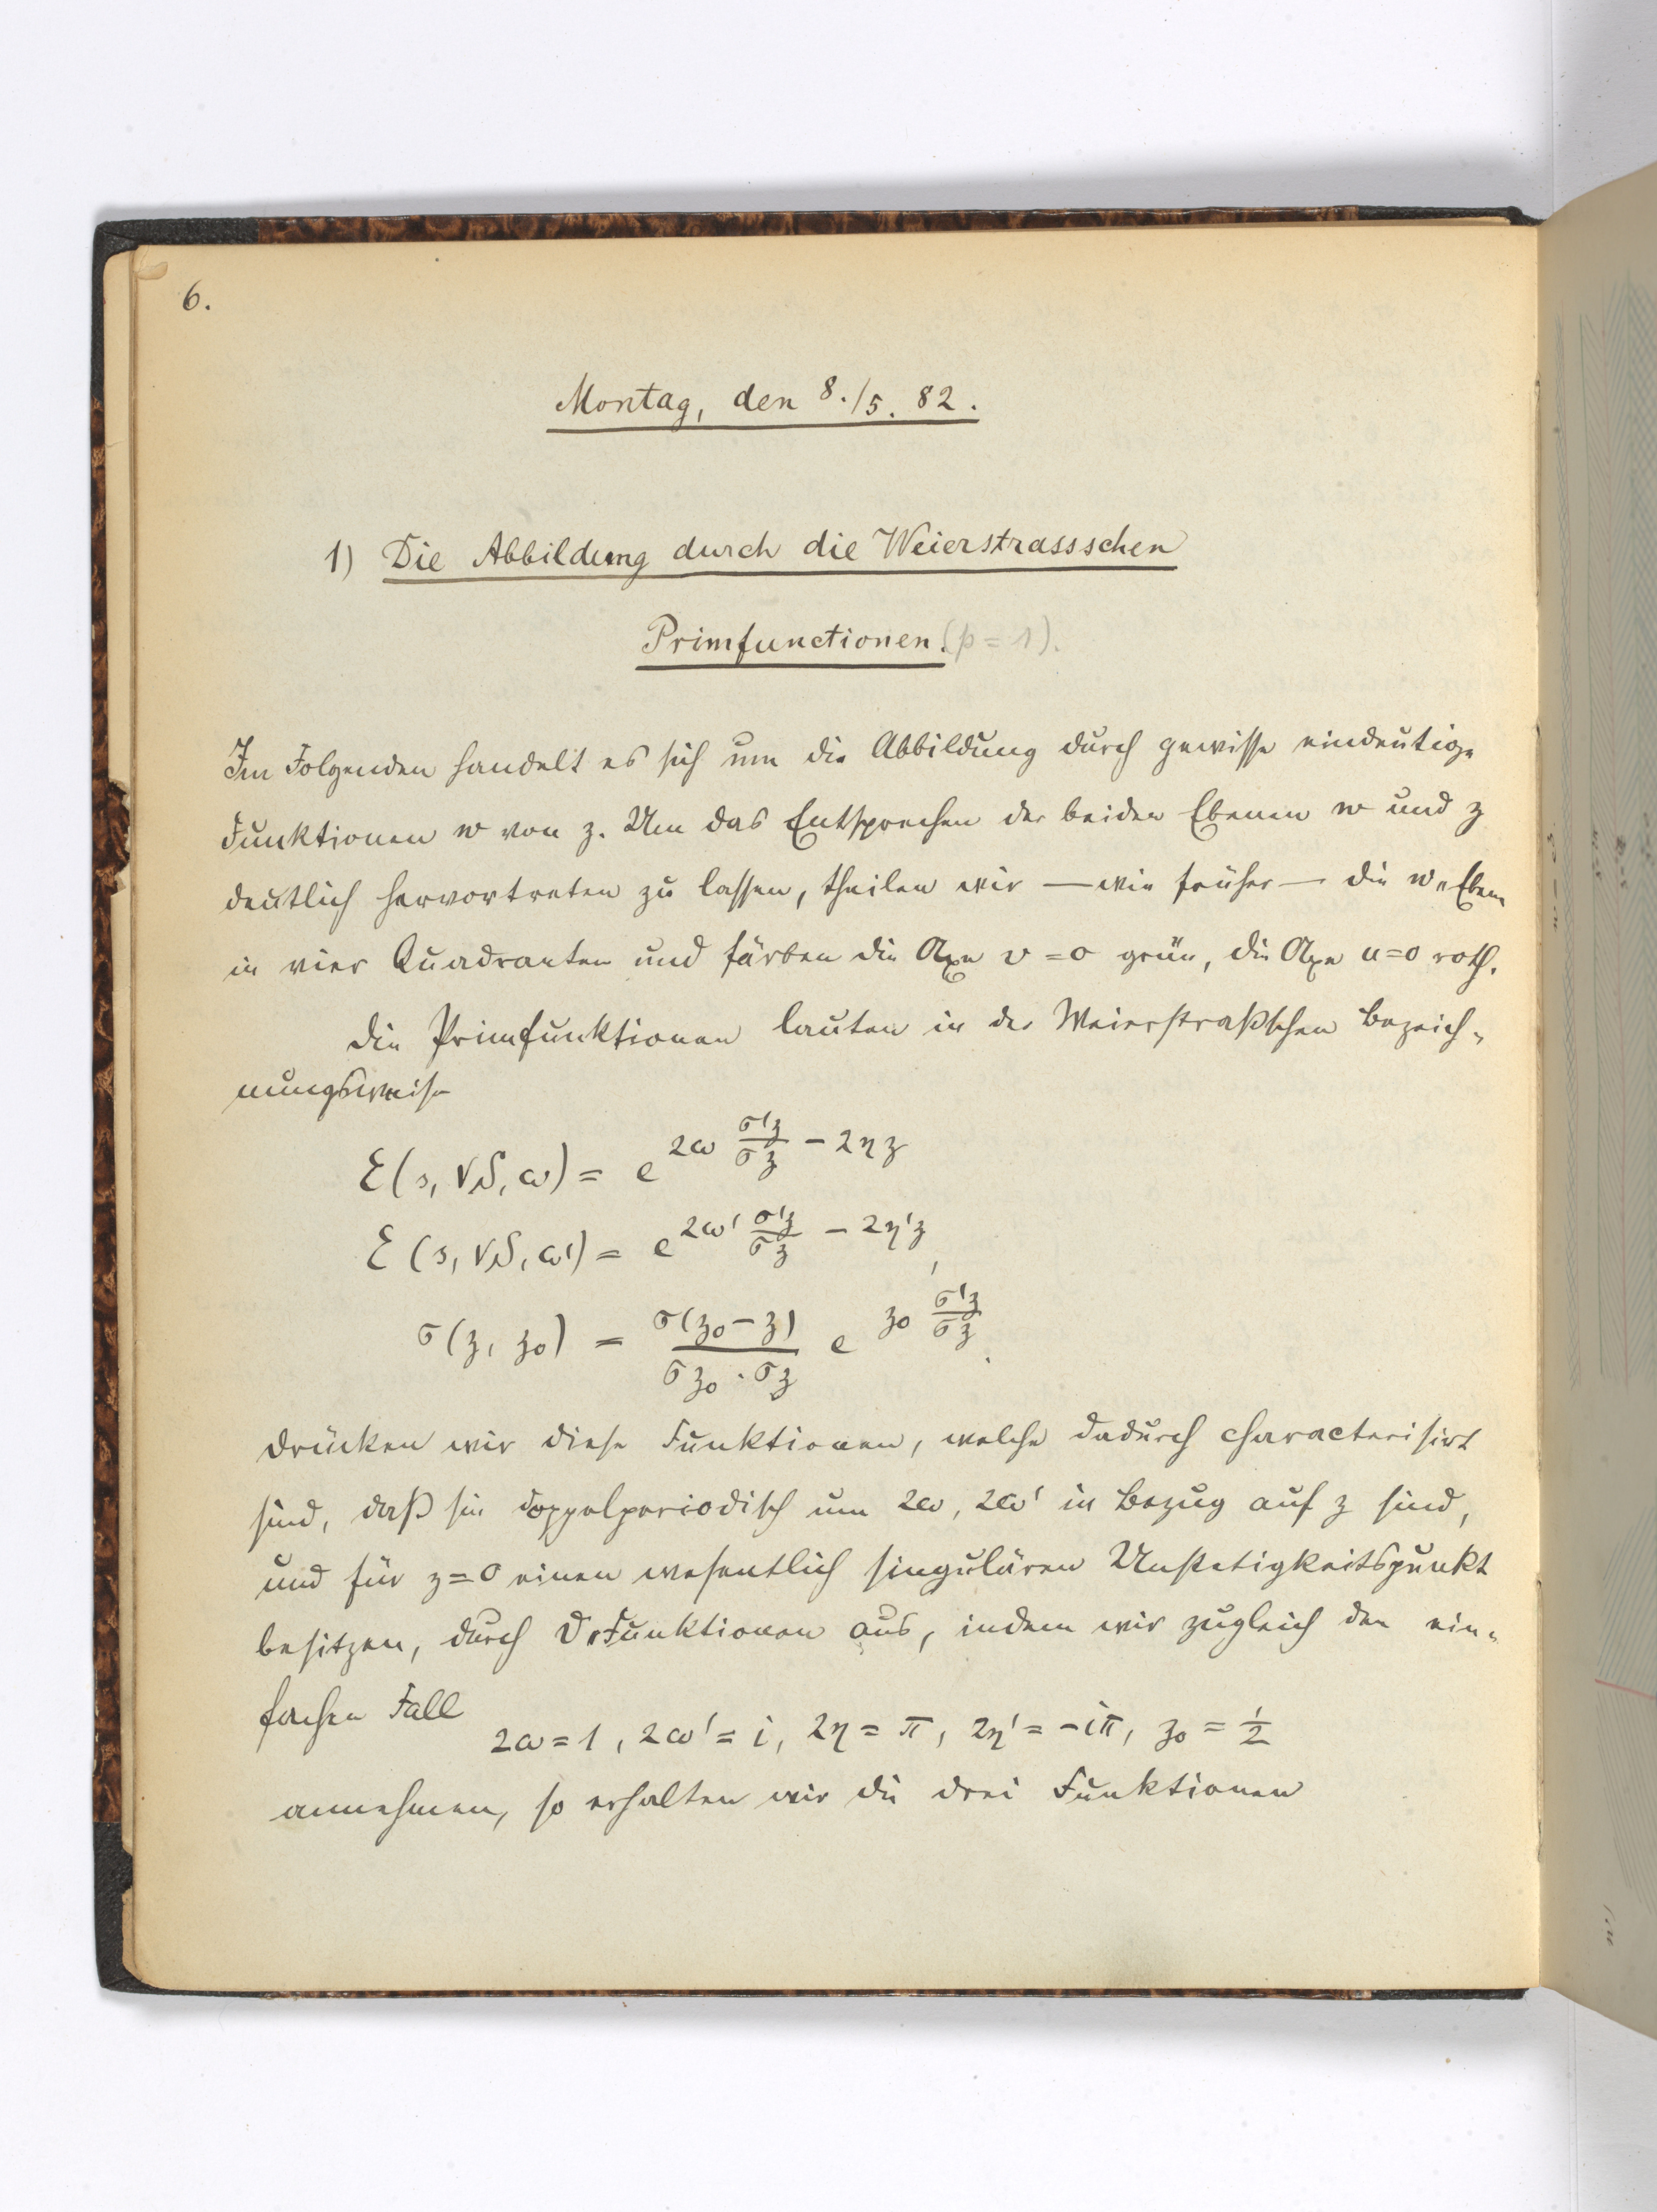 6.
Montag, den 8./5. 82.
1) Die Abbildung durch die Weierstrassschen
Primfunctionen. (p = 1).
Im Folgenden handelt es sich um die Abbildung durch gewisse eindeutige
Funktionen w von z. Um das Entsprechen der beiden Ebenen w und z
deutlich hervortreten zu lassen, theilen wir — wie früher — die w-Ebene
in vier Quadranten und färben die Axe v = 0 grün, die Axe u = 0 roth.
Die Primfunktionen lauten in der Weierstraßschen Bezeich-
nungsweise
ℰ(s, √S, ω) = e^{2ω \frac{σ'z}{σz} - 2ηz}
ℰ(s, √S, ω') = e^{2ω' \frac{σ'z}{σz} - 2η'z},
σ(z, z₀) = \frac{σ(z₀ - z)}{σz₀ · σz} e^{z₀ \frac{σ'z}{σz}}.
Drücken wir diese Funktionen, welche dadurch characterisirt
sind, daß sie doppelperiodisch um 2ω, 2ω' in Bezug auf z sind,
und für z = 0 einen wesentlich singulären Unstetigkeitspunkt
besitzen, durch ϑ-Funktionen aus, indem wir zugleich den ein-
fachen Fall
2ω = 1, 2ω' = i, 2η = π, 2η' = -iπ, z₀ = ½
annehmen, so erhalten wir die drei Funktionen